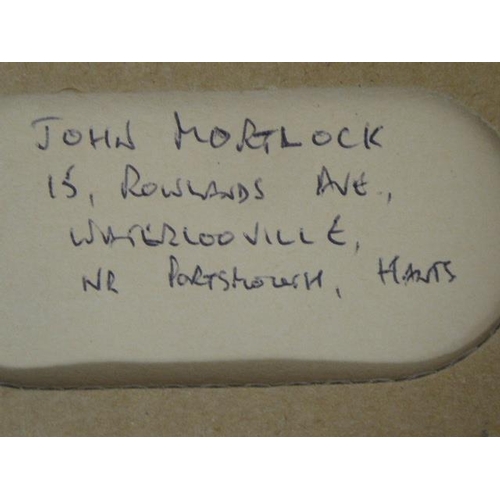 JOHN MORTLOCK
15, ROWLANDS AVE.,
WATERLOOVILLE,
NR PORTSMOUTH, HANTS